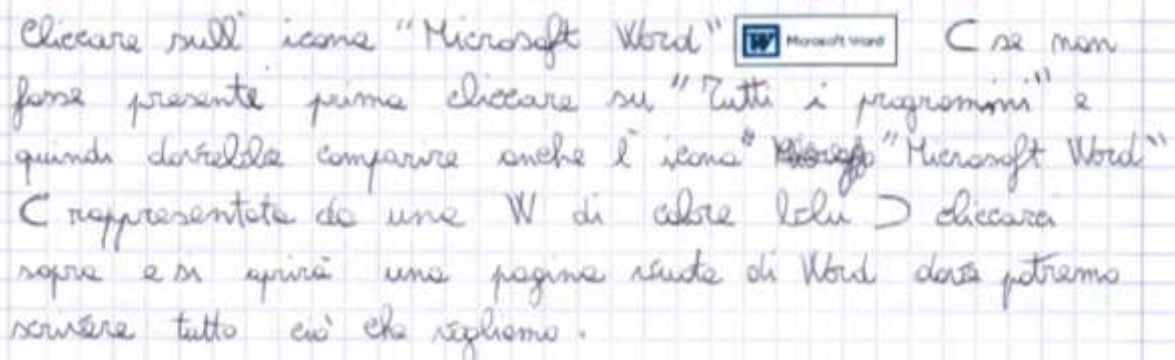 Cliccare sull' icona "Microsoft Word" W Microsoft Word ( se non
fosse presente prima cliccare su "Tutti i programmi" e
quindi dovrebbe comparire anche l' icona " "Microsoft Word"
( rappresentata da una W di colore blu ) cliccarci
sopra e si aprirà una pagina vuota di Word dove potremo
scrivere tutto ciò che vogliamo.